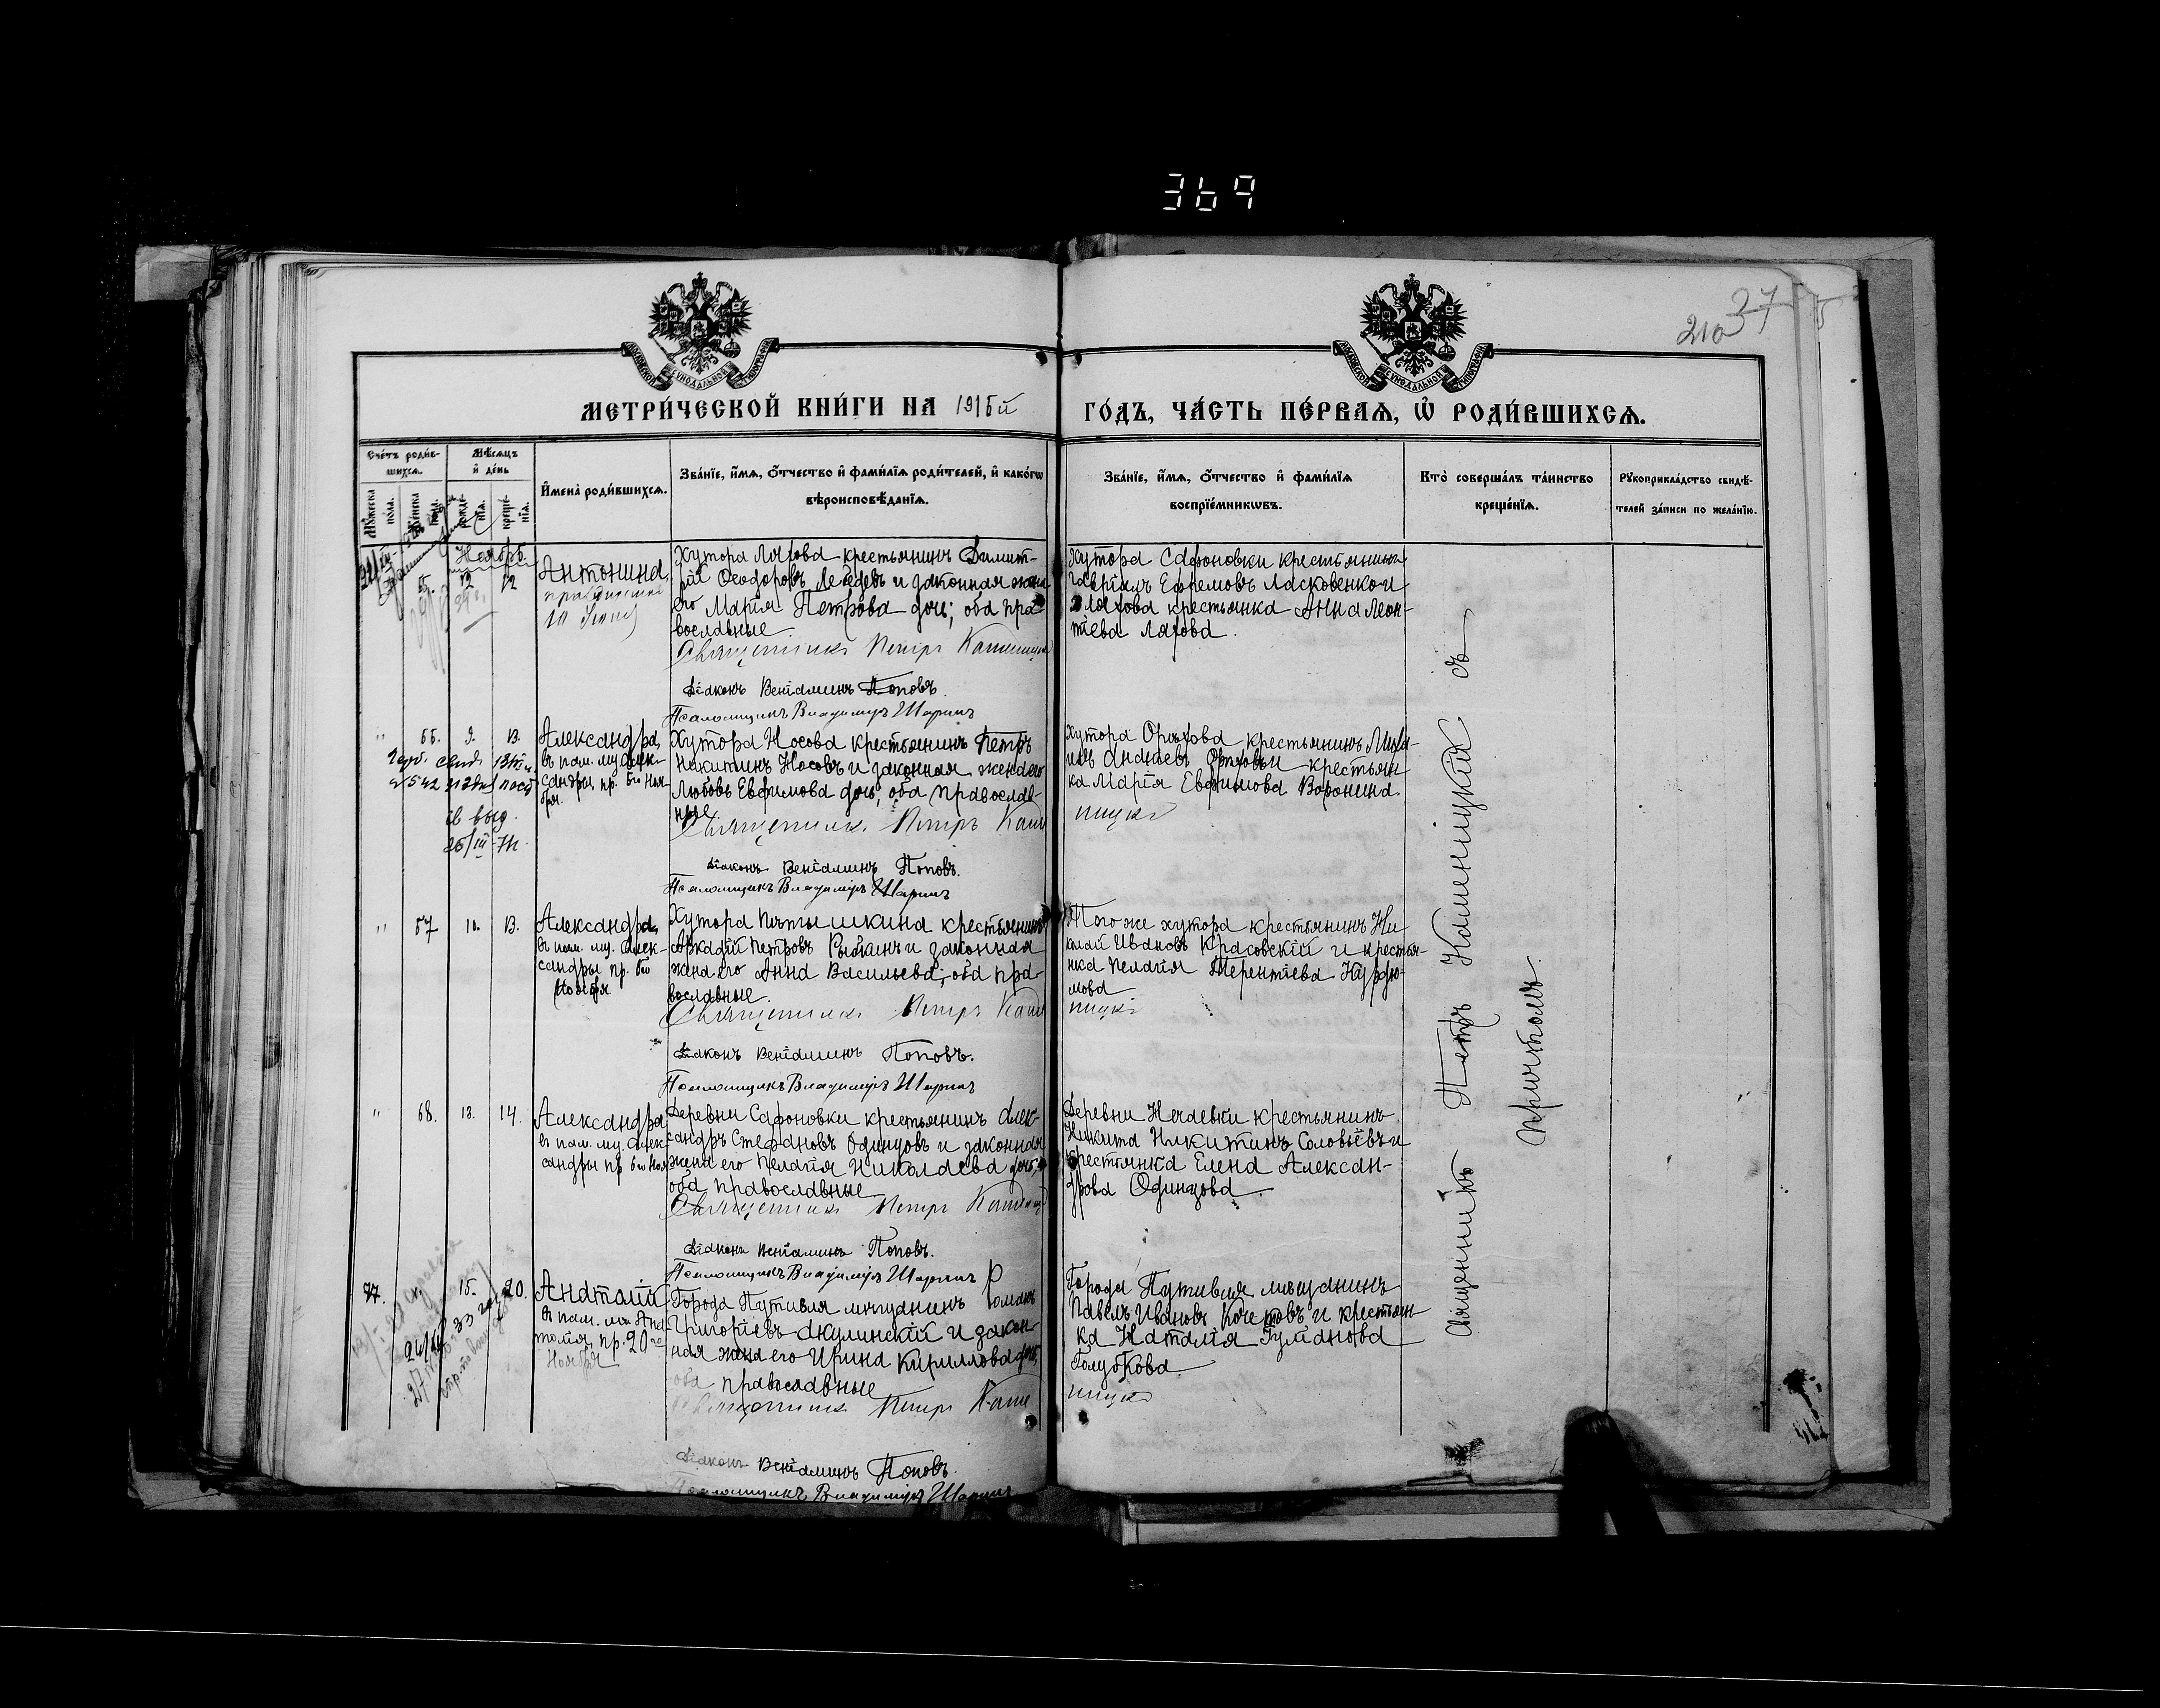 369
37
210
МОСКОВСКОЙ СѴНОДАЛЬНОЙ ТИПОГРАФІИ
МОСКОВСКОЙ СѴНОДАЛЬНОЙ ТИПОГРАФІИ
МЕТРИ́ЧЕСКОЙ КНИ́ГИ НА 1915й ГО́ДЪ, ЧА́СТЬ ПЕ́РВАѦ, Ѡ РОДИ́ВШИХСѦ.
Сче́тъ роди́в-
шихсѧ.
Мѣсѧцъ
и де́нь
Мꙋжеска
пола.
Женска
пола.
рожде́-
нїѧ.
креще́-
нїѧ.
И҆мена̀ роди́вшихсѧ.
Зва́нїе, и҆́мѧ, ѻ҆́тчество и҆ фами́лїѧ роди́телей, и҆ како́гѡ
вѣроисповѣ́данїѧ.
Зва́нїе, и҆́мѧ, ѻ҆́тчество и҆ фами́лїѧ
воспрїе́мникѡвъ.
Кто̀ соверша́лъ та́инство
креще́нїѧ.
Рꙋкоприкла́дство свидѣ́-
телей за́писи по жела́нїю.
Ноябрь
12
Антонина,
Хутора Ляхова крестьянинъ Димит-
рій Ѳеодоровъ Лебедевъ и законная жена
его Марія Петрова дочь; оба пра-
вославные
Священникъ Петръ Каменицкій
Діаконъ Веніаминъ Поповъ.
Псаломщикъ Владиміръ Шаринъ
Хутора Сафоновки крестьянинъ
Гавріилъ Ефремовъ Ласковенко и
Ляхова крестьянка Анна Леон-
тіева Ляхова.
" 9. 13.
Александра,
въ пам. му. Алек-
сандры, пр. 6го Ноя-
бря.
Хутора Носова крестьянинъ Петръ
Никитинъ Носовъ и законная жена его
Любовь Евфимова дочь; оба православ-
ные
Священникъ Петръ Каме
Діаконъ Веніаминъ Поповъ.
Псаломщикъ Владиміръ Шаринъ
Хутора Орѣхова крестьянинъ Миха-
илъ Ананіевъ Орѣховъ и крестьян-
ка Марія Евфимова Воронина.
ницкій
" 57 10. 13.
Александра,
въ пам. му. Алек-
сандры пр. 6го
Ноября
Хутора крестьянинъ
Аркадій Петровъ Рыбкинъ и законная
жена его Анна Васильева; оба пра-
вославные
Священникъ Петръ Каме
Діаконъ Веніаминъ Поповъ.
Псаломщикъ Владиміръ Шаринъ
Того же хутора крестьянинъ Ни-
колай Ивановъ Красовскій и крестья-
нка Пелагія Терентіева Курдю-
мова
ницкій
" 58. 13. 14.
Александра
въ пам. му. Алек-
сандры пр. 6го Ноя
Деревни Сафоновки крестьянинъ Алек-
сандръ Стефановъ Одинцовъ и законная
жена его Пелагія Николаева дочь;
оба православные
Священникъ Петръ Каменицк
Діаконъ Веніаминъ Поповъ.
Псаломщикъ Владиміръ Шаринъ
Деревни Нечаевки крестьянинъ
Никита Никитинъ Соловьёвъ и
крестьянка Елена Алексан-
дрова Одинцова.
77. 15. 20.
Анатолій
въ пам. му. Ана
толія, пр. 20го
Ноября
Города Путивля мѣщанинъ Романъ
Григоріевъ Акулинскій и закон-
ная жена его Ирина Кириллова дочь;
оба православные
Священникъ Петръ Каме
Діаконъ Веніаминъ Поповъ.
Псаломщикъ Владиміръ Шаринъ
Города Путивля мѣщанинъ
Павелъ Ивановъ Кочетовъ и крестьян-
ка Наталія
Голубкова.
ницкій
Священникъ Петръ Каменицкій съ
причтомъ.